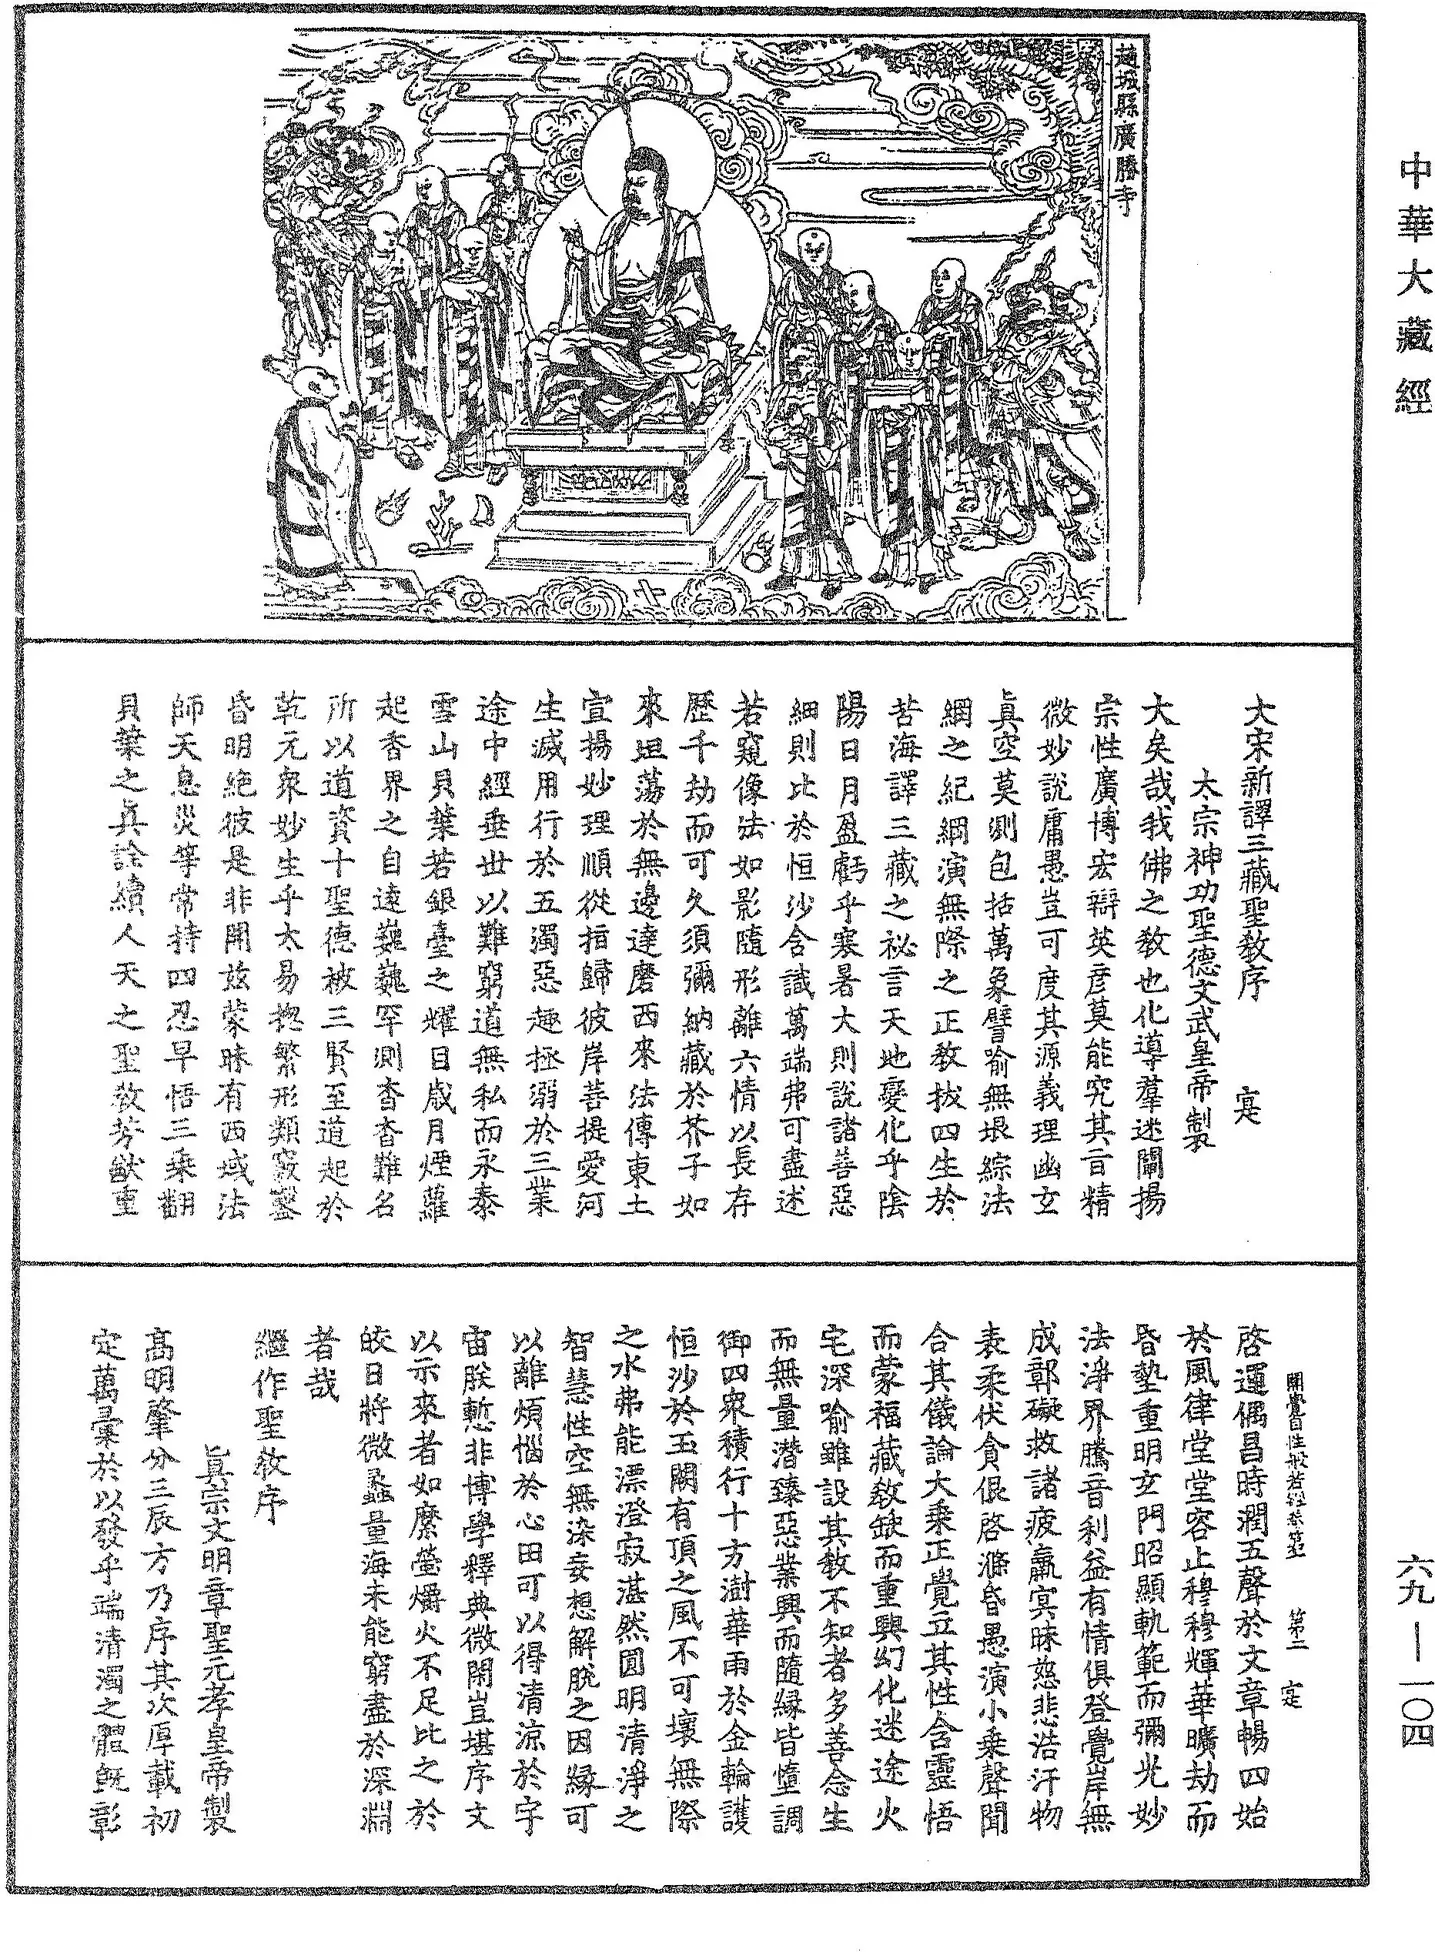 中華大藏經
趙城縣廣勝寺
大宋新譯三藏聖教序 寔
太宗神功聖德文武皇帝製
大矣哉我佛之教也化導羣迷闡揚
宗性廣博宏辯英彦莫能究其旨精
微妙說庸愚豈可度其源義理幽玄
眞空莫測包括萬象譬喻無垠綜法
網之紀綱演無際之正教拔四生於
苦海譯三藏之祕言天地變化乎陰
陽日月盈虧乎寒暑大則說諸善惡
細則比於恒沙含識萬端弗可盡述
若窺像法如影隨形離六情以長存
歷千劫而可久須彌納藏於芥子如
來坦蕩於無邊達磨西來法傳東土
宣揚妙理順從指歸彼岸菩提愛河
生滅用行於五濁惡趣極溺於三業
途中經垂世以難窮道無私而永泰
雪山貝葉若銀臺之耀日歲月煙蘿
起香界之自遠巍巍罕測杳杳難名
所以道資十聖德被三賢至道起於
乾元衆妙生乎太易揔繁形類竅鑿
昏明絶彼是非開兹蒙昧有西域法
師天息災等常持四忍早悟三乘翻
貝葉之眞詮續人天之聖教芳猷重
開覺自性般若經卷第一 第二 定
啓運偶昌時潤五聲於文章暢四始
於風律堂堂容止穆穆輝華曠劫而
昏墊重明玄門昭顯軌範而彌光妙
法淨界騰音利益有情俱登覺岸無
成鄣礙救諸疲羸冥昧慈悲浩汗物
表柔伏貪佷啓滌昏愚演小乘聲聞
合其儀論大乘正覺立其性含靈悟
而蒙福藏教缺而重興幻化迷途火
宅深喻雖設其教不知者多善念生
而無量潛臻惡業興而隨緣皆墮調
御四衆積行十方澍華雨於金輪護
恒沙於玉闕有頂之風不可壞無際
之水弗能漂澄寂湛然圓明清淨之
智慧性空無染妄想解脫之因緣可
以離煩惱於心田可以得清涼於宇
宙朕慙非博學釋典微閑豈堪序文
以示來者如縻螢爝火不足比之於
皎日將微蠡量海未能窮盡於深淵
者哉
繼作聖教序
眞宗文明章聖元孝皇帝製
高明肇分三辰方乃序其次厚載初
定萬彙於以發乎端清濁之體旣彰
六九—一〇四